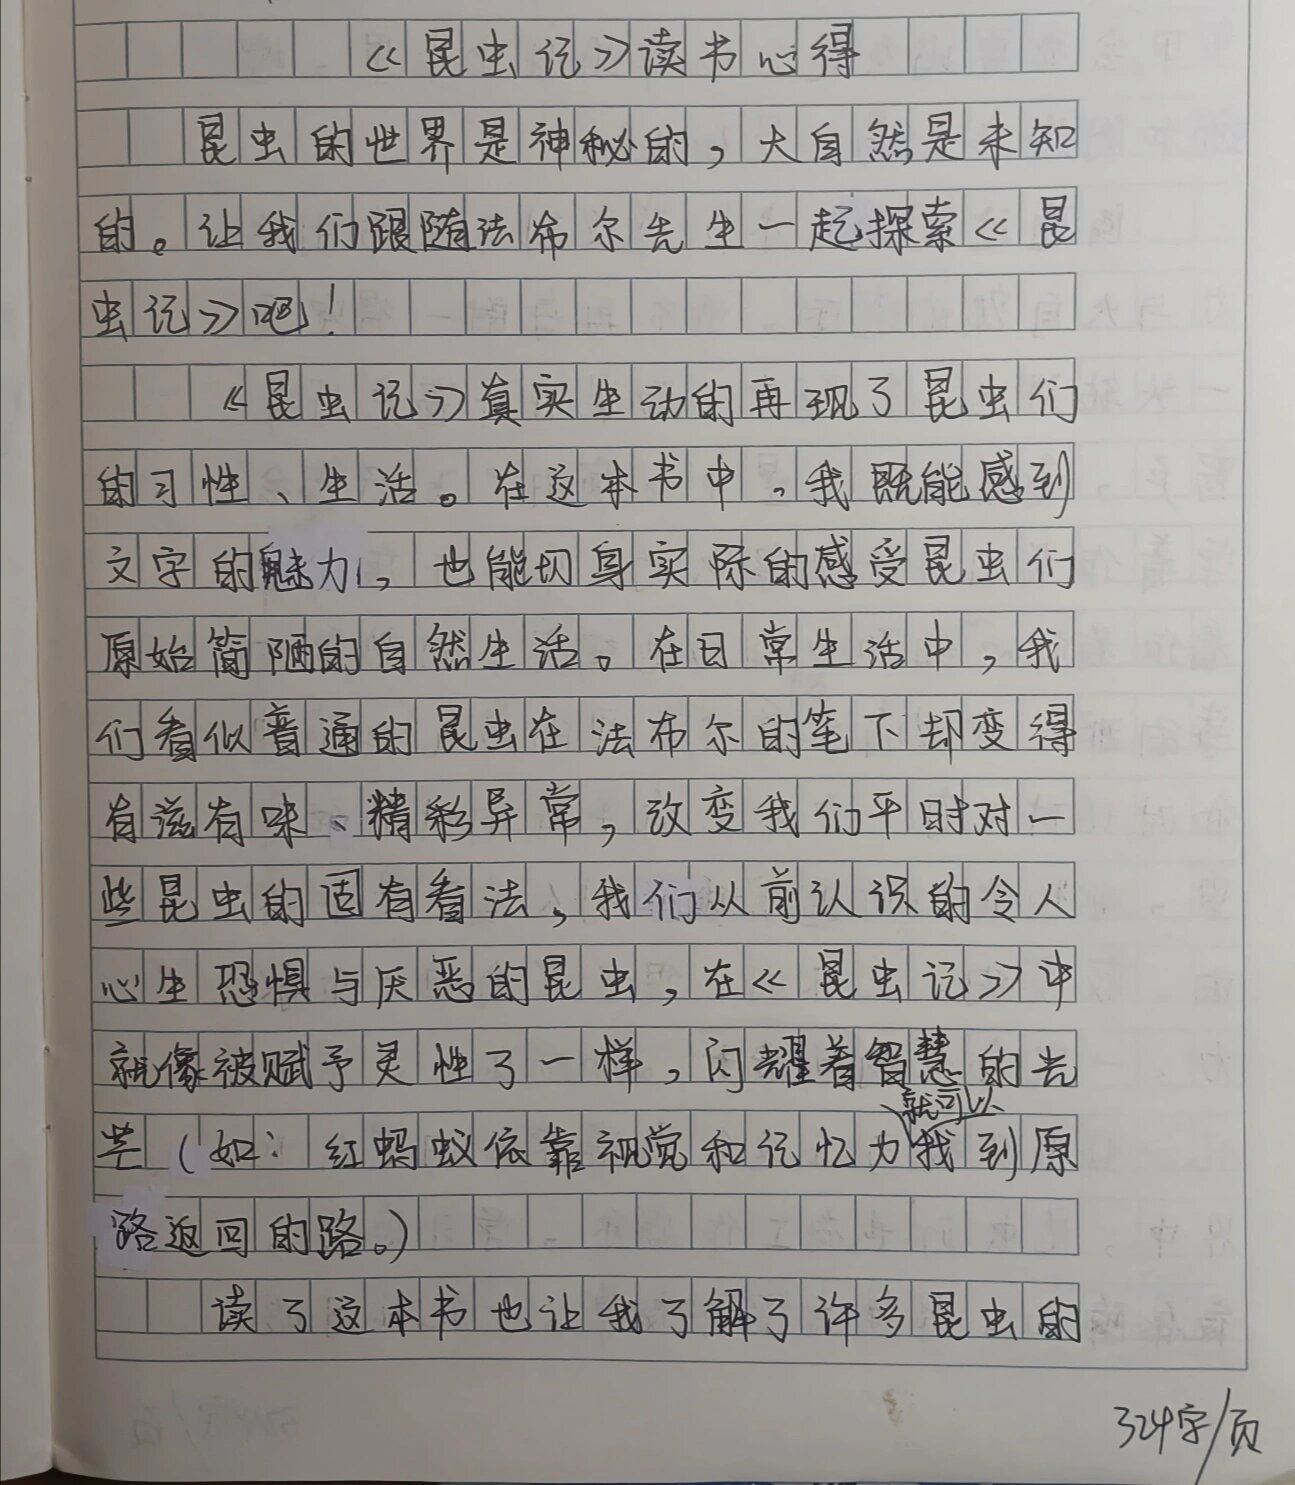 《昆虫记》读书心得
昆虫的世界是神秘的，大自然是未知
的。让我们跟随法布尔先生一起探索《昆
虫记》吧！
《昆虫记》真实生动的再现了昆虫们
的习性、生活。在这本书中，我既能感到
文字的魅力，也能切身实际的感受昆虫们
原始简陋的自然生活。在日常生活中，我
们看似普通的昆虫在法布尔的笔下却变得
有滋有味、精彩异常，改变我们平时对一
些昆虫的固有看法，我们从前认识的令人
心生恐惧与厌恶的昆虫，在《昆虫记》中
就像被赋予灵性了一样，闪耀着智慧的光
就可以
芒（如：红蚂蚁依靠视觉和记忆力找到原
路返回的路。）
读了这本书也让我了解了许多昆虫的
324字/页